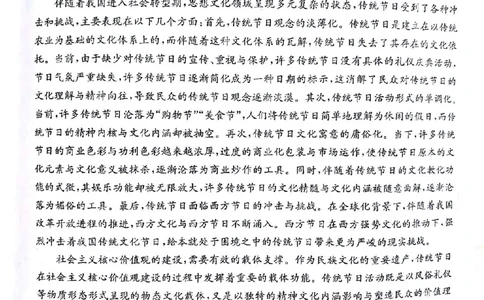 伴随着我国进入社会转型期，思想文化领域呈现多元复杂的状态，传统节日受到了各种冲
击和挑战，主要表现在以下几个方面：首先，传统节日观念的淡薄化。传统节日是建立在以传统
农业为基础的文化体系上的，而伴随着这种文化体系的瓦解，传统节日失去了其存在的文化依
托。当前，由于缺少对传统节日的宣传、重视与保护，许多传统节日没有具体的礼仪庆典活动，
节日气氛严重缺失，许多传统节日逐渐简化成为一种日期的标示，这消解了民众对传统节日的
文化理解与精神向往，导致民众的传统节日观念逐渐淡漠。其次，传统节日活动形式的单调化。
当前，许多传统节日沦落为“购物节”“美食节”，人们将传统节日简单地理解为休闲的假日，而传
统节日的精神内核与文化内涵却被抽空。再次，传统节日文化寓意的庸俗化。当下，许多传统
节日的商业色彩与功利色彩越来越浓厚，过度的商业化包装与市场运作，使传统节日原本的文
化元素与文化意义被抹杀，逐渐沦落为商业炒作的工具。同时，伴随着传统节日的文化教化功
能的式微，其娱乐功能却被无限放大，许多传统节日的文化精髓与文化内涵被随意曲解，逐渐沦
落为媚俗的工具。最后，传统节日面临西方节日的冲击与挑战。在全球化背景下，伴随着我国
改革开放进程的推进，西方文化与西方节日不断涌入。西方节日在西方强势文化的推动下，强
烈冲击着我国传统文化节日，给本就处于困境之中的传统节日带来更为严峻的现实挑战。
社会主义核心价值观的建设，需要有效的载体支撑。作为民族文化的重要遗产，传统节日
在社会主义核心价值观建设的过程中发挥着重要的载体功能。传统节日活动既是以风俗礼仪
等物质形态形式呈现的物态文化载体，又是以独特的精神文化内涵影响与塑造民众价值理